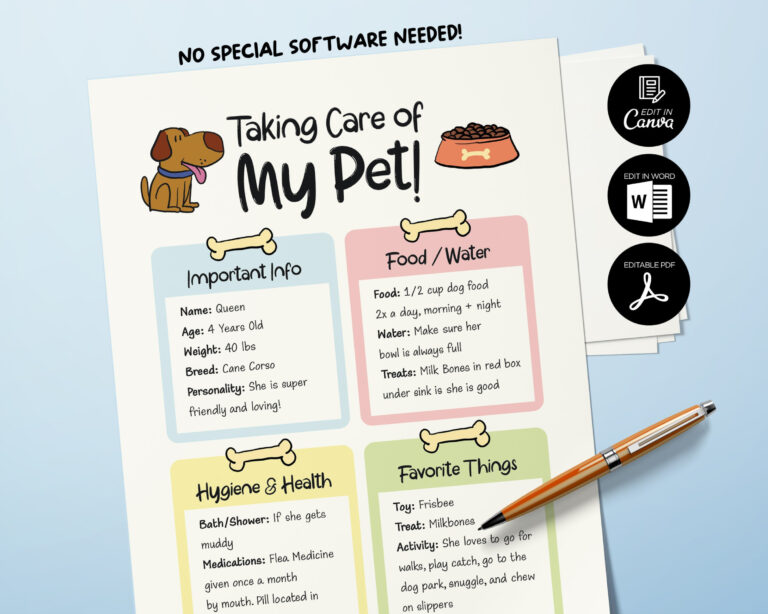 NO SPECIAL SOFTWARE NEEDED!
Taking Care of
My Pet!
EDIT IN
Canva
EDIT IN WORD
W
EDITABLE PDF
Important Info
Name: Queen
Age: 4 Years Old
Weight: 40 lbs
Breed: Cane Corso
Personality: She is super
friendly and loving!
Food / Water
Food: 1/2 cup dog food
2x a day, morning + night
Water: Make sure her
bowl is always full
Treats: Milk Bones in red box
under sink is she is good
Hygiene & Health
Bath/Shower: If she gets
muddy
Medications: Flea Medicine
given once a month
by mouth. Pill located in
Favorite Things
Toy: Frisbee
Treat: Milkbones
Activity: She loves to go for
walks, play catch, go to the
dog park, snuggle, and chew
on slippers